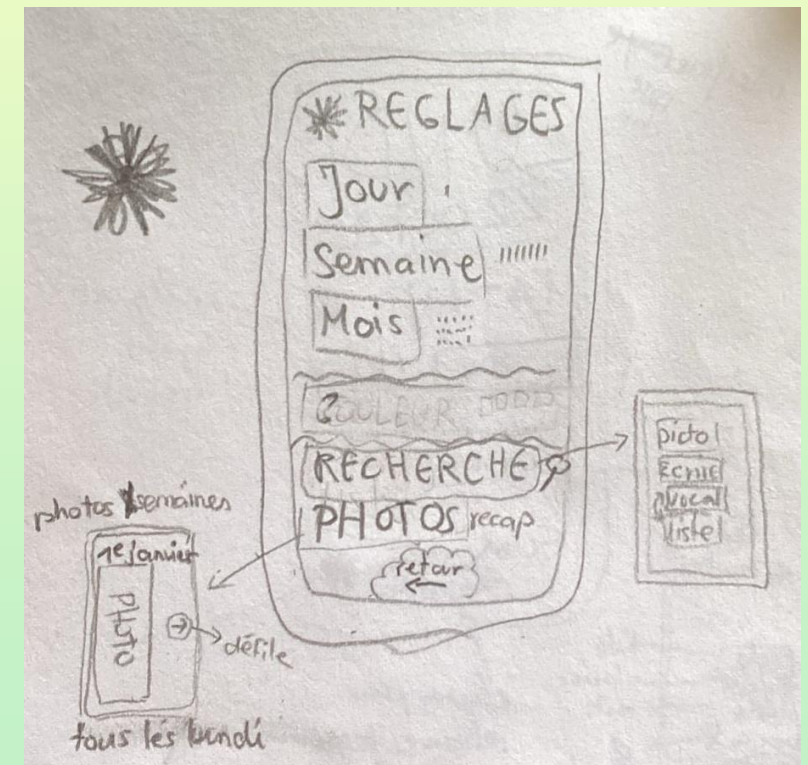 REGLAGES
Jour
Semaine
Mois
COULEUR
RECHERCHE
PHOTOS recap
retour
picto
Ecrit
vocal
liste
photos semaines
1e janvier
PHOTO
défile
tous les lundi